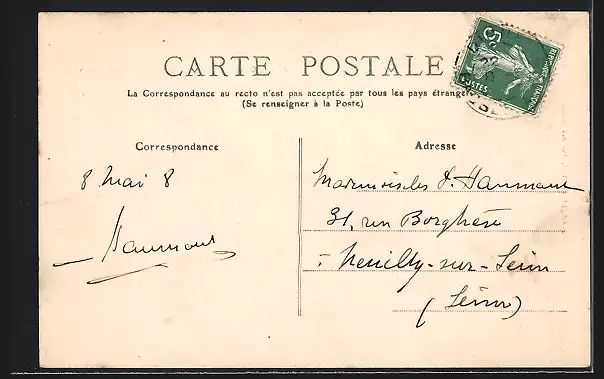 CARTE POSTALE
La Correspondance au recto n'est pas acceptée par tous les pays étrangers
(Se renseigner à la Poste)
Correspondance
Adresse
8 Mai 8
31, rue Borghèse
Neuilly-sur-Seine
(Seine)
5c
POSTES